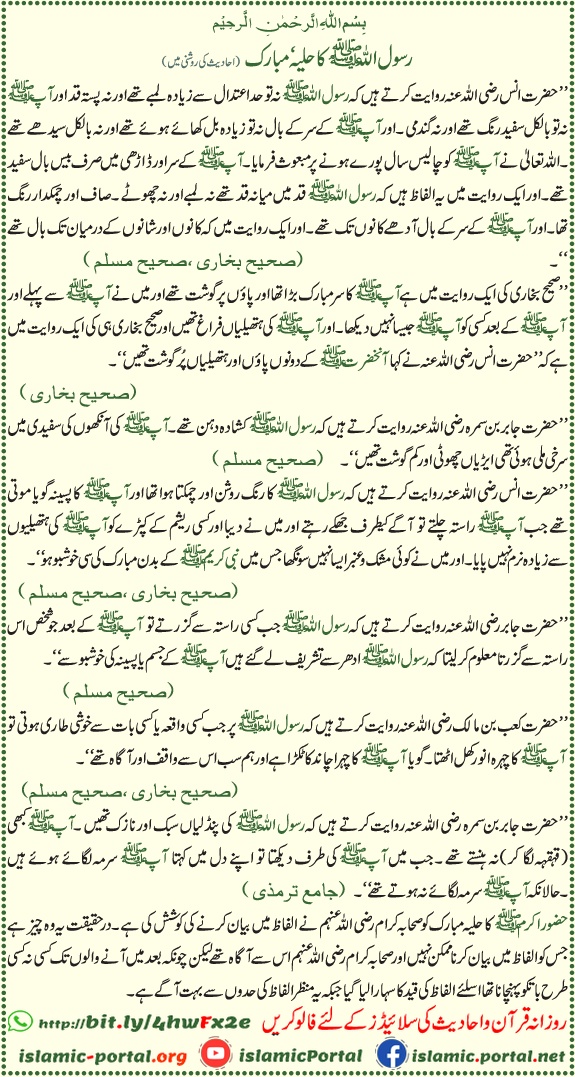 بِسْمِ اللهِ الرَّحْمٰنِ الرَّحِيْمِ
رسول اللہ ﷺ کا حلیہ مبارک (احادیث کی روشنی میں)
’’حضرت انس رضی اللہ عنہ روایت کرتے ہیں کہ رسول اللہ ﷺ نہ تو حد اعتدال سے زیادہ لمبے تھے اور نہ پستہ قد اور آپ ﷺ
نہ تو بالکل سفید رنگ تھے اور نہ گندمی ۔ اور آپ ﷺ کے سر کے بال نہ تو زیادہ بل کھائے ہوئے تھے اور نہ بالکل سیدھے تھے
۔ اللہ تعالیٰ نے آپ ﷺ کو چالیس سال پورے ہونے پر مبعوث فرمایا۔ آپ ﷺ کے سر اور ڈاڑھی میں صرف بیس بال سفید
تھے۔ اور ایک روایت میں یہ الفاظ ہیں کہ رسول اللہ ﷺ قد میں میانہ قد تھے نہ لمبے اور نہ چھوٹے۔ صاف اور چمکدار رنگ
تھا۔ اور آپ ﷺ کے سر کے بال آدھے کانوں تک تھے۔ اور ایک روایت میں کہ کانوں اور شانوں کے درمیان تک بال تھے
‘‘۔ (صحیح بخاری ،صحیح مسلم )
’’صحیح بخاری کی ایک روایت میں ہے آپ ﷺ کا سر مبارک بڑا تھا اور پاؤں پر گوشت تھے اور میں نے آپ ﷺ سے پہلے اور
آپ ﷺ کے بعد کسی کو آپ ﷺ جیسا نہیں دیکھا۔ اور آپ ﷺ کی ہتھیلیاں فراغ تھیں اور صحیح بخاری ہی کی ایک روایت میں
ہے کہ ’’حضرت انس رضی اللہ عنہ نے کہا آنحضرت ﷺ کے دونوں پاؤں اور ہتھیلیاں پُر گوشت تھیں‘‘۔
(صحیح بخاری )
’’حضرت جابر بن سمرہ رضی اللہ عنہ روایت کرتے ہیں کہ رسول اللہ ﷺ کشادہ دہن تھے۔ آپ ﷺ کی آنکھوں کی سفیدی میں
سرخی ملی ہوئی تھی ایڑیاں چھوٹی اور کم گوشت تھیں‘‘۔ (صحیح مسلم )
’’حضرت انس رضی اللہ عنہ روایت کرتے ہیں کہ رسول اللہ ﷺ کا رنگ روشن اور چمکتا ہوا تھا اور آپ ﷺ کا پسینہ گویا موتی
تھے جب آپ ﷺ راستہ چلتے تو آگے کیطرف جھکے رہتے اور میں نے دیبا اور کسی ریشم کے کپڑے کو آپ ﷺ کی ہتھیلیوں
سے زیادہ نرم نہیں پایا۔ اور میں نے کوئی مشک و عنبر ایسا نہیں سونگھا جس میں نبی کریم ﷺ کے بدن مبارک کی سی خوشبو ہو‘‘۔
(صحیح بخاری ،صحیح مسلم )
’’حضرت جابر رضی اللہ عنہ روایت کرتے ہیں کہ رسول اللہ ﷺ جب کسی راستہ سے گزرتے تو آپ ﷺ کے بعد جو شخص اس
راستہ سے گزرتا معلوم کرلیتا کہ رسول اللہ ﷺ ادھر سے تشریف لے گئے ہیں آپ ﷺ کے جسم یا پسینہ کی خوشبو سے‘‘۔
(صحیح مسلم )
’’حضرت کعب بن مالک رضی اللہ عنہ روایت کرتے ہیں کہ رسول اللہ ﷺ پر جب کسی واقعہ یا کسی بات سے خوشی طاری ہوتی تو
آپ ﷺ کا چہرہ انور کھل اٹھتا۔ گویا آپ ﷺ کا چہرا چاند کا ٹکڑا ہے اور ہم سب اس سے واقف اور آگاہ تھے‘‘۔
(صحیح بخاری ،صحیح مسلم)
’’حضرت جابر بن سمرہ رضی اللہ عنہ روایت کرتے ہیں کہ رسول اللہ ﷺ کی پنڈلیاں سبک اور نازک تھیں ۔ آپ ﷺ کبھی
(قہقہہ لگا کر) نہ ہنستے تھے ۔ جب میں آپ ﷺ کی طرف دیکھتا تو اپنے دل میں کہتا آپ ﷺ سرمہ لگائے ہوئے ہیں
۔ حالانکہ آپ ﷺ سرمہ لگائے نہ ہوتے تھے‘‘۔ (جامع ترمذی )
حضور اکرم ﷺ کا حلیہ مبارک کو صحابہ کرام رضی اللہ عنہم نے الفاظ میں بیان کرنے کی کوشش کی ہے۔ درحقیقت یہ وہ چیز ہے
جس کو الفاظ میں بیان کرنا ممکن نہیں اور صحابہ کرام رضی اللہ عنہم اس سے آگاہ تھے لیکن چونکہ بعد میں آنے والوں تک کسی نہ کسی
طرح بات کو پہنچانا تھا اسلئے الفاظ کی قید کا سہارا لیا گیا جبکہ یہ منظر الفاظ کی حدوں سے بہت آگے ہے۔
روزانہ قرآن و احادیث کی سلائیڈز کے لئے فالو کریں http://bit.ly/4hwFx2e
islamic-portal.org islamicPortal islamic.portal.net